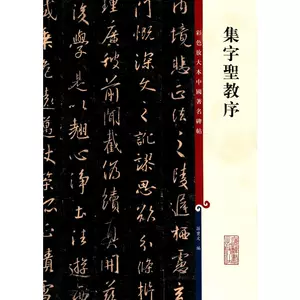 集字聖教序
彩色放大本中國著名碑帖
孫寶文 編
內境悲正法之陵遲栖慮玄
慨深文之訛謬思欲分條析
前聞截偽續真
後學是以翹心淨土法遊西